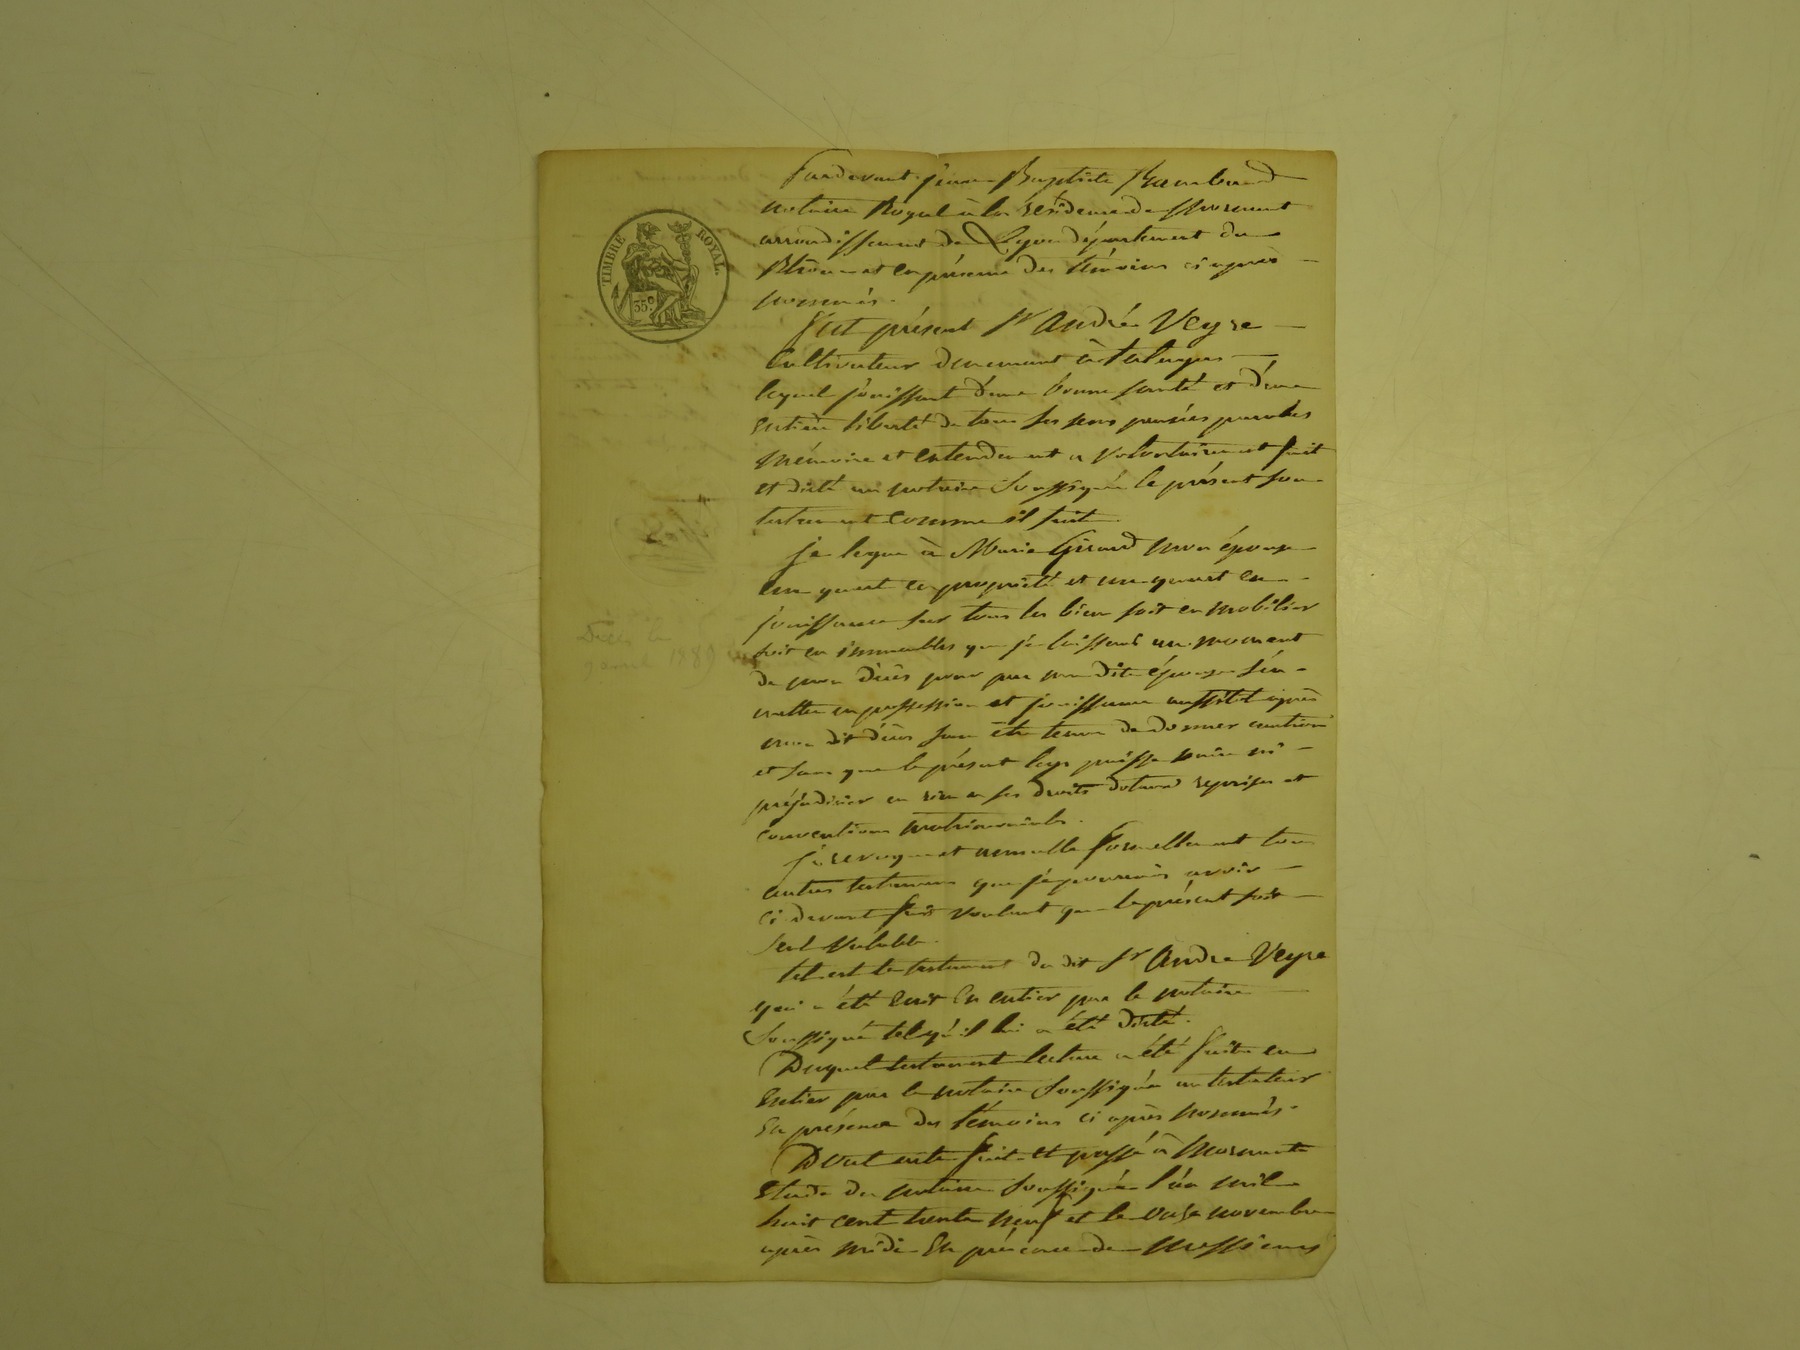 TIMBRE ROYAL.
35c.
Pardevant Jean Baptiste Rambaud
notaire Royal à la résidence de Mornant
arrondissement de Lyon département du
Rhône et en présence des témoins ci après
nommés.
fut présent Sr André Veyre
Cultivateur demeurant à
lequel jouissant d'une bonne santé et d'une
entière liberté de tous ses sens pensées paroles
mémoire et entendement a volontairement fait
et dicté au notaire soussigné le présent son
testament comme il suit.
Je lègue à Marie Girard mon épouse
un quart en propriété et un quart en
jouissance sur tous les bien soit en mobilier
soit en immeubles que je laisserai au moment
de mon décès pour par ma dite épouse s'en
mettre en possession et jouissance aussitôt après
mon dit décès sans être tenue de donner caution
et sans que le présent legs puisse nuire ni
préjudicier en rien a ses droits dotaux reprises et
conventions matrimoniales.
Je revoque et annulle formellement tous
autres testamens que je pourrais avoir
ci devant fait voulant que le présent soit
seul valable.
tel est le testament du dit Sr André Veyre
qui a été écrit en entier par le notaire
soussigné tel qu'il lui a été dicté.
Duquel testament lecture a été faite en
entier par le notaire soussigné au testateur
en présence des témoins ci après nommés.
Dont acte fait et passé à Mornant
étude du notaire soussigné l'an mil
huit cent trente neuf et le onze novembre
après midi en présence de messieurs
Décès le
avril 188